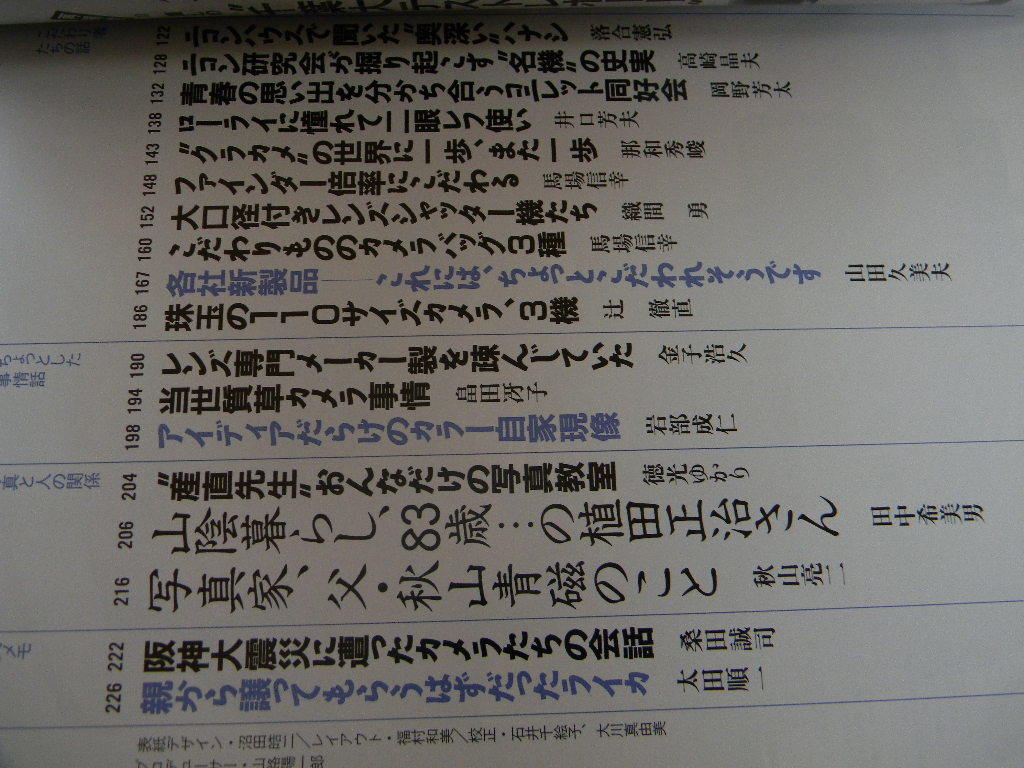 こだわり者
たちの話
122 ニコンハウスで聞いた"奥深い"ハナシ 落合憲弘
128 ニコン研究会が掘り起こす"名機"の史実 高崎晶夫
132 青春の思い出を分かち合うヨーレット同好会 岡野芳太
138 ローライに憧れて二眼レフ使い 井口芳夫
143 "クラカメ"の世界に一歩、また一歩 那和秀峻
148 ファインダー倍率にこだわる 馬場信幸
152 大口径付きレンズシャッター機たち 織間 勇
160 こだわりもののカメラバッグ3種 馬場信幸
167 各社新製品——これには、ちょっと、こだわれそうです 山田久美夫
186 珠玉の110サイズカメラ、3機 辻 徹直
ちょっとした
事情話
190 レンズ専門メーカー製を疎んじていた 金子浩久
194 当世質草カメラ事情 畠田冴子
198 アイディアだらけのカラー自家現像 岩部成仁
真と人の関係
204 "産直先生"おんなだけの写真教室 徳光ゆかり
206 山陰暮らし、83歳…の植田正治さん 田中希美男
216 写真家、父・秋山青磁のこと 秋山亮二
メモ
222 阪神大震災に遭ったカメラたちの会話 桑田誠司
226 親から譲ってもらうはずだったライカ 太田順一
表紙デザイン・沼田皓二/レイアウト・福村和美/校正・石井千絵子、大川真由美
プロデューサー・山路陽一郎